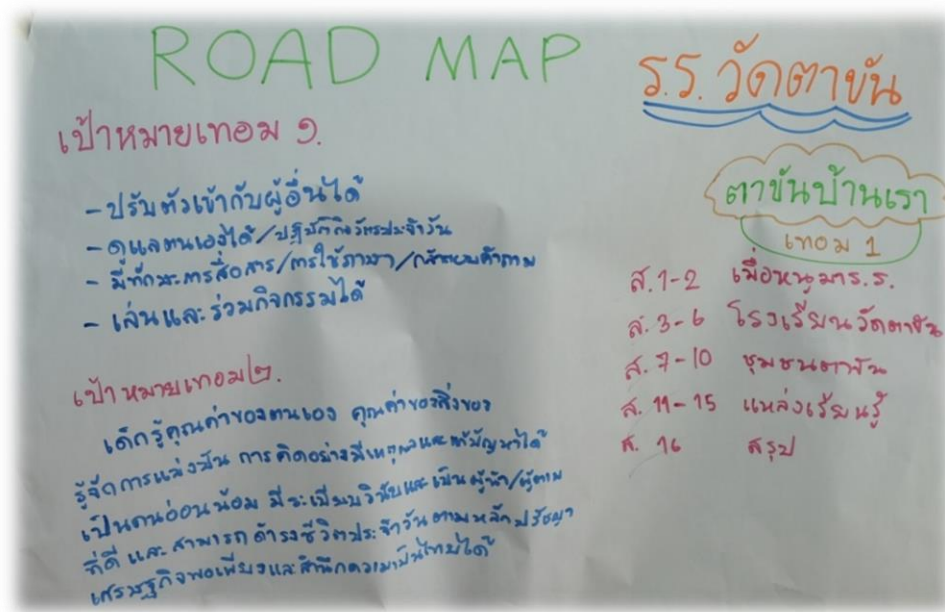 ROAD MAP
เป้าหมายเทอม ๑.
- ปรับตัวเข้ากับผู้อื่นได้
- ดูแลตนเองได้/ปฏิบัติกิจวัตรประจำวัน
- มีทักษะการสื่อสาร/การใช้ภาษา/กล้าตอบคำถาม
- เล่นและร่วมกิจกรรมได้
เป้าหมายเทอม๒.
เด็กรู้คุณค่าของตนเอง คุณค่าของสิ่งของ
รู้จักการแบ่งปัน การคิดอย่างมีเหตุผลและแก้ปัญหาได้
เป็นคนอ่อนน้อม มีระเบียบวินัยและเป็นผู้นำ/ผู้ตาม
ที่ดี และสามารถดำรงชีวิตประจำวันตามหลักปรัชญา
เศรษฐกิจพอเพียงและสำนึกความเป็นไทยได้
ร.ร. วัดตาขัน
ตาขันบ้านเรา
เทอม 1
ส. 1-2 เมื่อหนูมาร.ร.
ส. 3-6 โรงเรียนวัดตาขัน
ส. 7-10 ชุมชนตาขัน
ส. 11-15 แหล่งเรียนรู้
ส. 16 สรุป